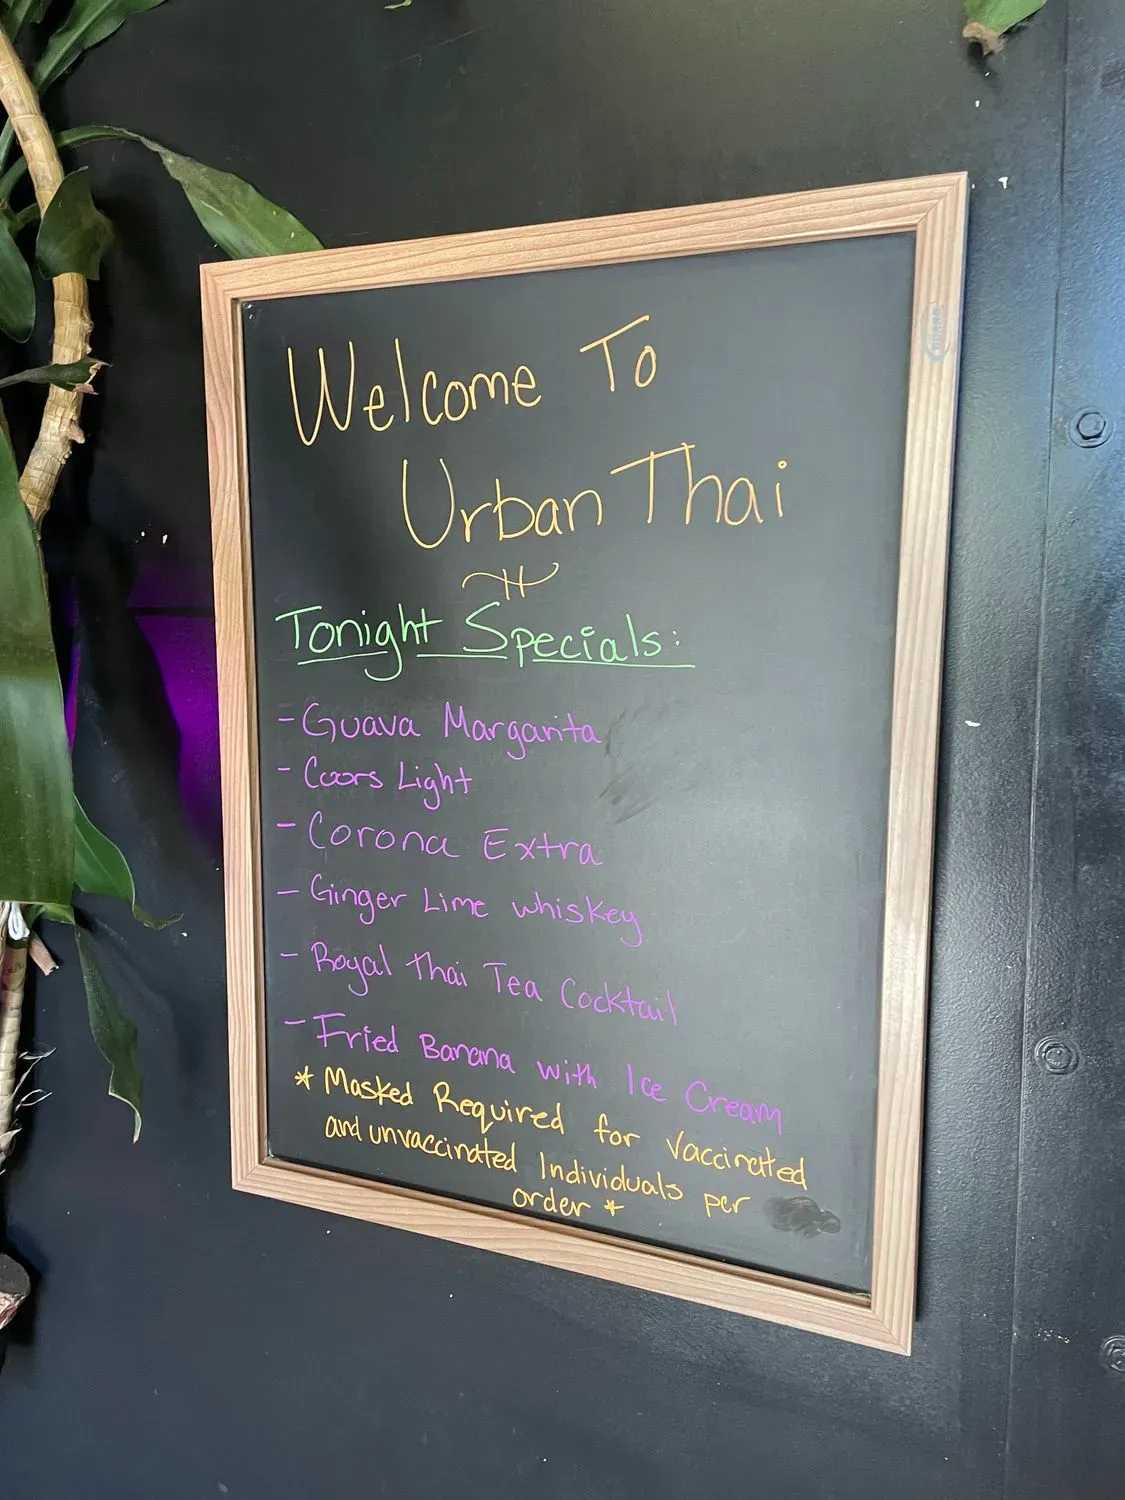 Welcome To
Urban Thai
Tonight Specials:
- Guava Margarita
- Coors Light
- Corona Extra
- Ginger Lime whiskey
- Royal Thai Tea Cocktail
- Fried Banana with Ice Cream
* Masked Required for Vaccinated
and unvaccinated Individuals per
order *